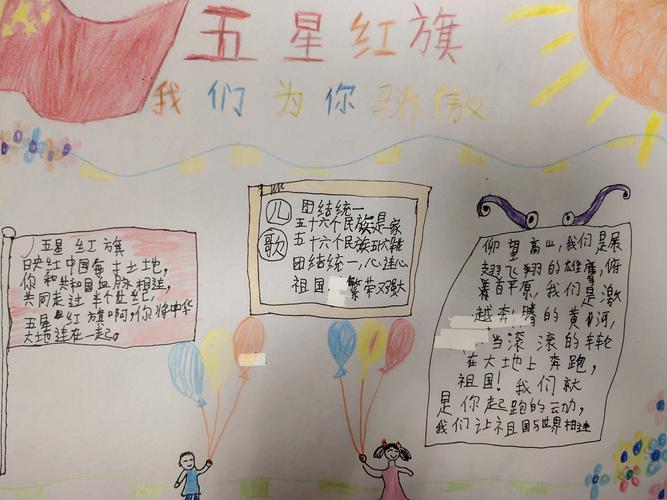 五星红旗
我们为你骄傲
五星红旗
映红中国每寸土地,
你和共和国血脉相连,
共同走过半个世纪,
五星红旗啊,你将中华
大地连在一起。
儿歌
团结统一
五十六个民族是一家
五十六个民族
团结统一,心连心
祖国 繁荣又强大
仰望高山,我们是展
翅飞翔的雄鹰,俯
着首平原,我们是激
越奔腾的黄河,
当滚滚的车轮
在大地上奔跑,
祖国!我们就
是你起跑的动力,
我们让祖国与世界相连